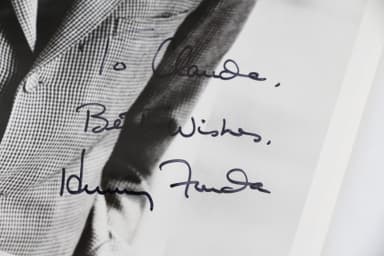 To Claude,
Best Wishes,
Henry Fonda